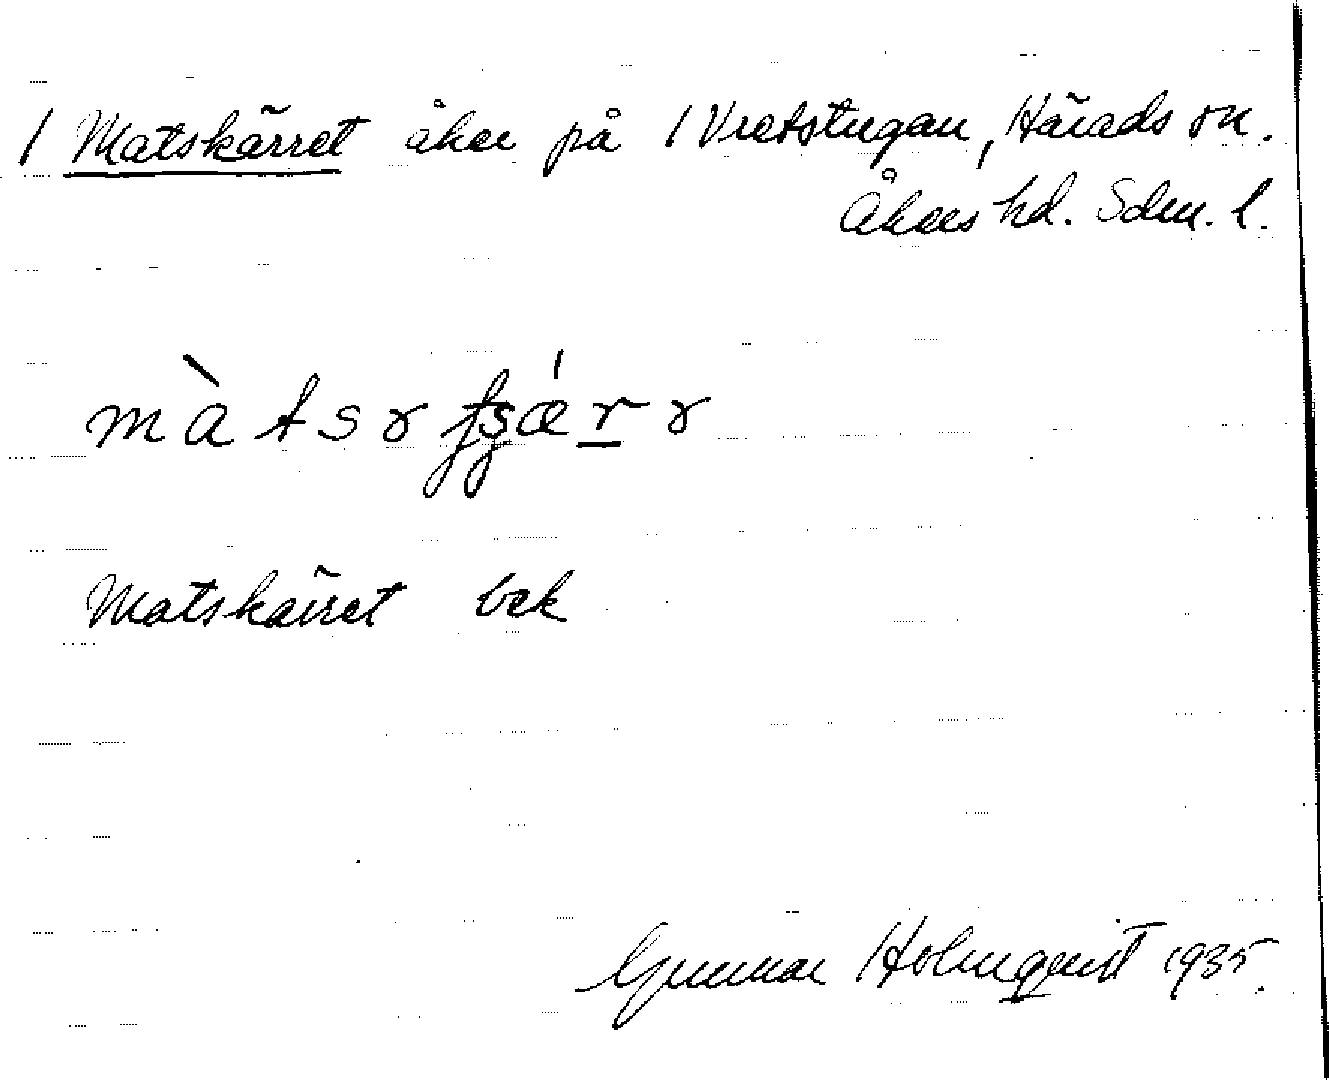 / Matskärret åker på / Vretstugan, Härads sn.
Åkers hd. Sdm. l.
Matskärret bek
Gunnar Holmquist 1935.